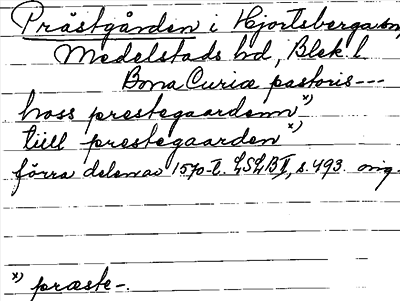 Prästgården i Hjortsberga sn,
Medelstads hd, Blek. l.
Bona Curiæ pastoris ---
hoss prestegaardenn x)
tiill prestegaarden x)
förra delen av 1570-t. LSLB II, s. 493. orig.
x) præste-.